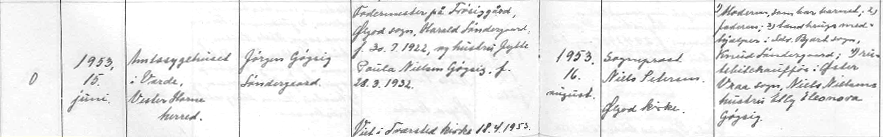 0
1953.
15.
juni.
Amtssygehuset
i Varde,
Vester Horne
herred.
Jörgen Gøgsig
Söndergaard.
Fodermester på Frøsiggård,
Øgod sogn, Harald Söndergaard,
f. 30. 7. 1922, og hustru Jytte
Paula Nielsen Gøgsig. f.
28. 3. 1932.
Viet i Tvorsted kirke 18.4.1953.
1953.
16.
august.
Sognepræst
Niels Petersen.
Øgod kirke.
1) Moderen, som bar barnet; 2)
faderen; 3) landbrugsmed-
hjælper i Sdr. Bjert sogn,
Knud Söndergaard;
i Øster
Vraa sogn, Niels Nielsens
hustru Elly Eleonora
Gøgsig.